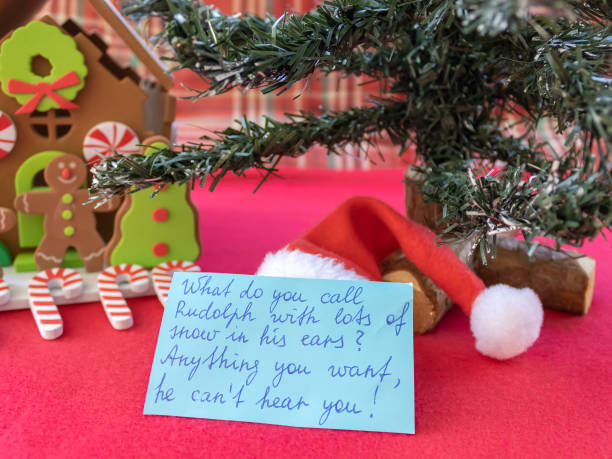 What do you call
Rudolph with lots of
snow in his ears?
Anything you want,
he can't hear you!